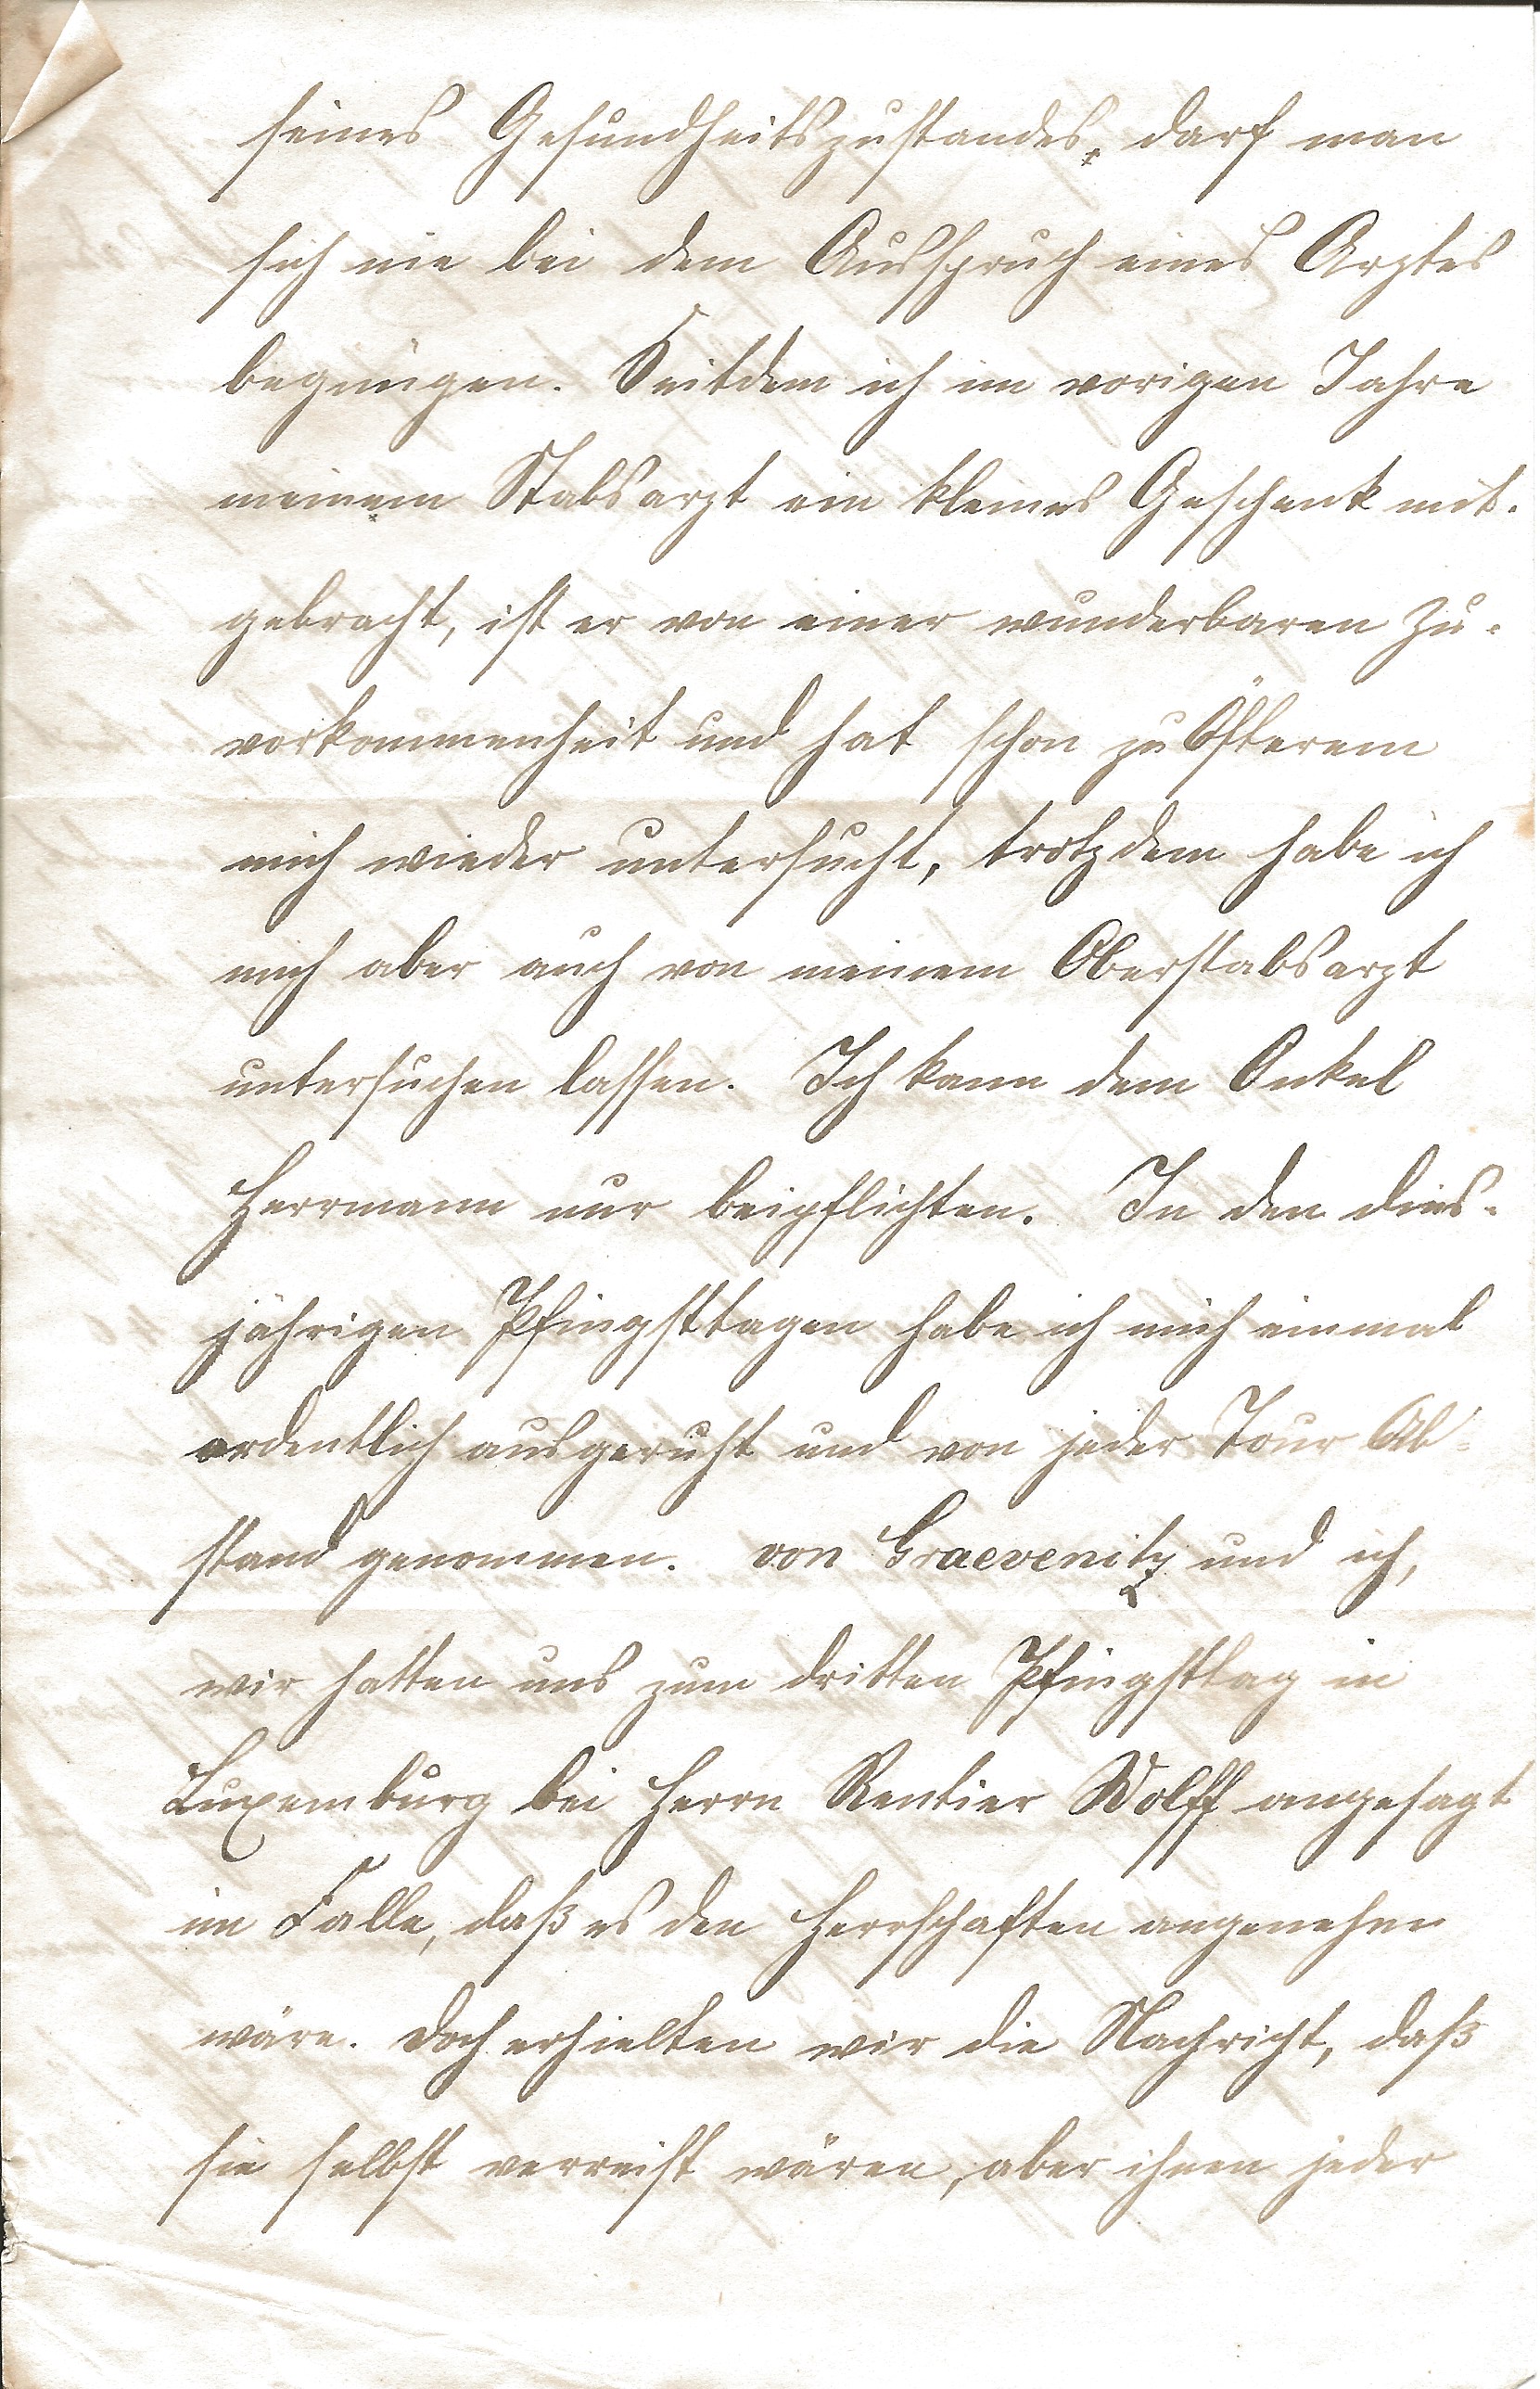 seines Gesundheitszustandes, darf man
sich nie bei dem Ausspruch eines Arztes
begnügen. Seitdem ich im vorigen Jahre
meinem Stabsarzt ein kleines Geschenk mit-
gebracht, ist er von einer wunderbaren Zu-
vorkommenheit und hat schon zu Öfterem
mich wieder untersucht, trotzdem habe ich
mich aber auch von meinem Oberstabsarzt
untersuchen lassen. Ich kann dem Onkel
Herrmann nur beipflichten. In den dies-
jährigen Pfingsttagen habe ich mich einmal
ordentlich ausgeruht und von jeder Tour Ab-
stand genommen. von Graevenitz und ich,
wir hatten uns zum dritten Pfingsttag in
Luxemburg bei Herrn Rentier Wolff angesagt
im Falle, daß es den Herrschaften angenehm
wäre. Doch erhielten wir die Nachricht, daß
sie selbst verreist wären, aber ihnen jeder